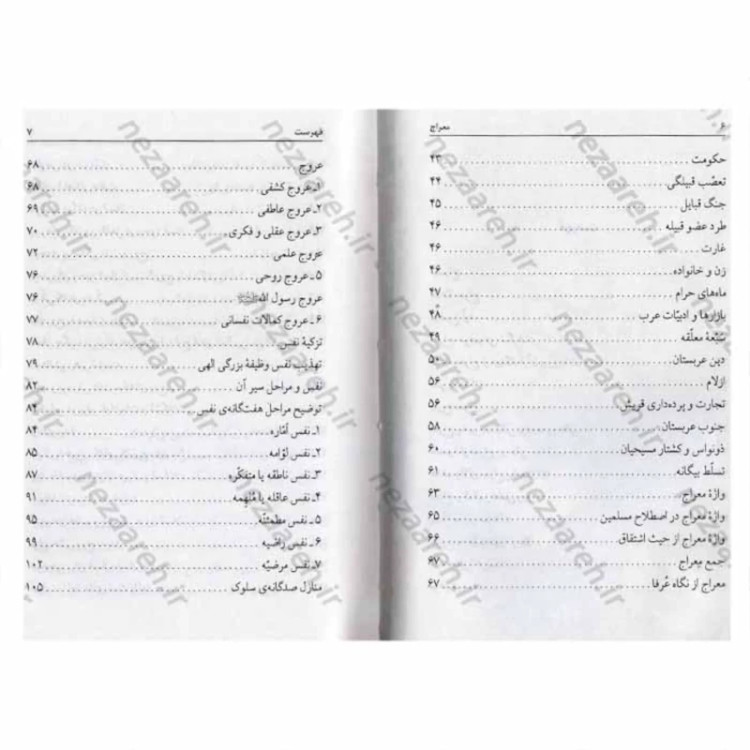 ۶ معراج
حکومت ........ ۴۳
تعصّب قبیلگی ........ ۴۴
جنگ قبایل ........ ۴۵
طرد عضو قبیله ........ ۴۶
غارت ........ ۴۶
زن و خانواده ........ ۴۶
ماه‌های حرام ........ ۴۷
بازارها و ادبیّات عرب ........ ۴۸
سَبْعهٔ معلّقه ........ ۴۹
دین عربستان ........ ۵۰
ازلام ........ ۵۶
تجارت و پرده‌داری قریش ........ ۵۶
جنوب عربستان ........ ۵۸
ذونواس و کشتار مسیحیان ........ ۶۰
تسلّط بیگانه ........ ۶۱
واژهٔ معراج ........ ۶۳
واژهٔ معراج در اصطلاح مسلمین ........ ۶۵
واژهٔ معراج از حیث اشتقاق ........ ۶۶
جمع مِعراج ........ ۶۷
معراج از نگاه عُرفا ........ ۶۷
فهرست ۷
عروج ........ ۶۸
۱ـ عروج کشفی ........ ۶۸
۲ـ عروج عاطفی ........ ۶۹
۳ـ عروج عقلی و فکری ........ ۷۰
عروج علمی ........ ۷۲
۵ ـ عروج روحی ........ ۷۶
عروج رسول الله ﷺ ........ ۷۶
۶ ـ عروج کمالات نفسانی ........ ۷۷
تزکیهٔ نفس ........ ۷۸
تهذیب نفس وظیفهٔ بزرگی الهی ........ ۷۹
نفس و مراحل سیر آن ........ ۸۲
توضیح مراحل هفتگانه‌ی نفس ........ ۸۴
۱ـ نفس أمّاره ........ ۸۴
۲ـ نفس لوّامه ........ ۸۵
۳ـ نفس ناطقه یا متفکّره ........ ۸۷
۴ـ نفس عاقله یا مُلهمه ........ ۹۱
۵ ـ نفس مطمئنّه ........ ۹۵
۶ ـ نفس راضیه ........ ۹۹
۷ـ نفس مرضیّه ........ ۱۰۲
منازل صدگانه‌ی سلوک ........ ۱۰۵
nezaareh.ir
nezaareh.ir
nezaareh.ir
nezaareh.ir
nezaareh.ir
nezaareh.ir
nezaareh.ir
nezaareh.ir